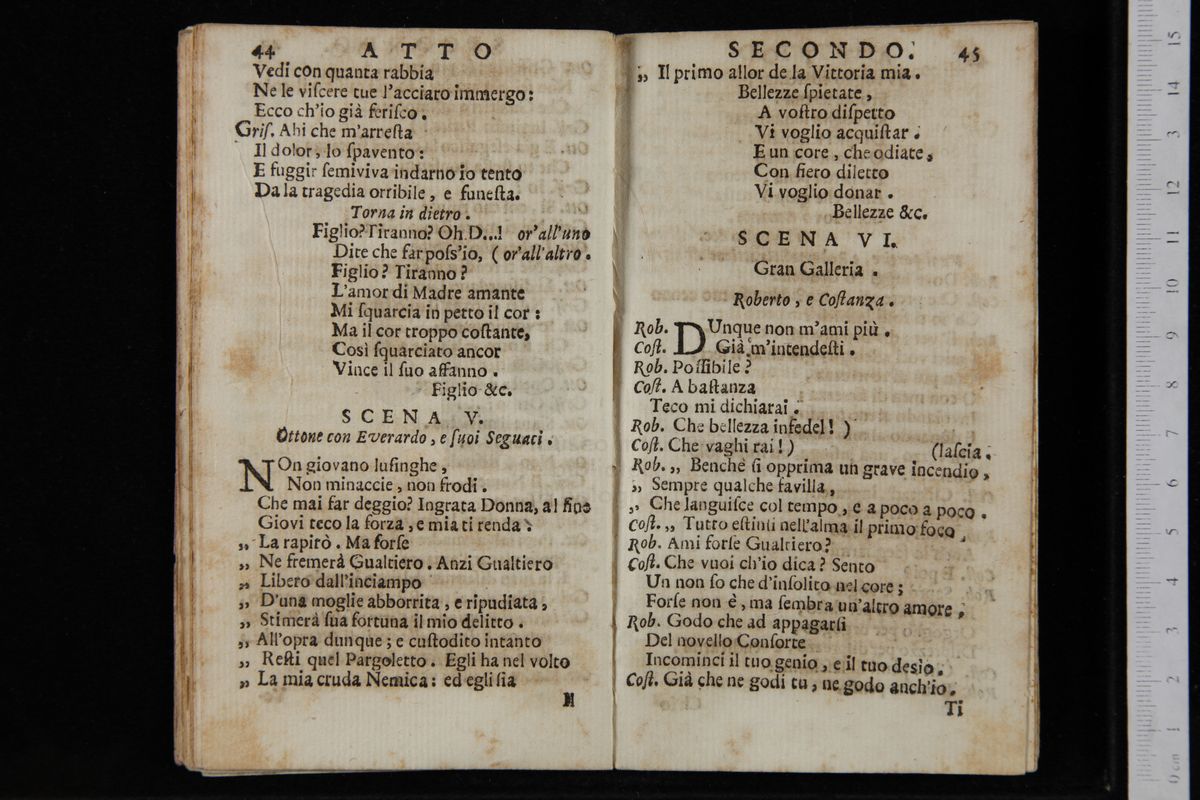 44 ATTO
Vedi con quanta rabbia
Ne le viſcere tue l'acciaro immergo:
Ecco ch'io già feriſco.
Griſ. Ahi che m'arreſta
Il dolor, lo ſpavento:
E fuggir ſemiviva indarno io tento
Da la tragedia orribile, e funeſta.
Torna in dietro.
Figlio? Tiranno? Oh D...! or'all'uno
Dite che far poſs'io, ( or'all'altro.
Figlio? Tiranno?
L'amor di Madre amante
Mi ſquarcia in petto il cor:
Ma il cor troppo coſtante,
Così ſquarciato ancor
Vince il ſuo affanno.
Figlio &c.
SCENA V.
Ottone con Everardo, e ſuoi Seguaci.
NOn giovano luſinghe,
Non minaccie, non frodi.
Che mai far deggio? Ingrata Donna, al fine
Giovi teco la forza, e mia ti renda:
„ La rapirò. Ma forſe
„ Ne fremerà Gualtiero. Anzi Gualtiero
„ Libero dall'inciampo
„ D'una moglie abborrita, e ripudiata,
„ Stimerà ſua fortuna il mio delitto.
„ All'opra dunque; e cuſtodito intanto
„ Reſti quel Pargoletto. Egli ha nel volto
„ La mia cruda Nemica: ed egli ſia
Il
SECONDO. 45
„ Il primo allor de la Vittoria mia.
Bellezze ſpietate,
A voſtro diſpetto
Vi voglio acquiſtar.
E un core, che odiate,
Con fiero diletto
Vi voglio donar.
Bellezze &c.
SCENA VI.
Gran Galleria.
Roberto, e Coſtanza.
Rob. DUnque non m'ami più.
Coſt. Già m'intendeſti.
Rob. Poſſibile?
Coſt. A baſtanza
Teco mi dichiarai.
Rob. Che bellezza infedel! )
Coſt. Che vaghi rai! ) (laſcia.
Rob. „ Benchè ſi opprima un grave incendio,
„ Sempre qualche favilla,
„ Che languiſce col tempo, e a poco a poco.
Coſt. „ Tutto eſtinſi nell'alma il primo foco.
Rob. Ami forſe Gualtiero?
Coſt. Che vuoi ch'io dica? Sento
Un non ſo che d'inſolito nel core;
Forſe non è, ma ſembra un'altro amore.
Rob. Godo che ad appagarſi
Del novello Conſorte
Incominci il tuo genio, e il tuo desìo.
Coſt. Già che ne godi tu, ne godo anch'io.
Ti
0 cm 1 2 3 4 5 6 7 8 9 10 11 12 13 14 15